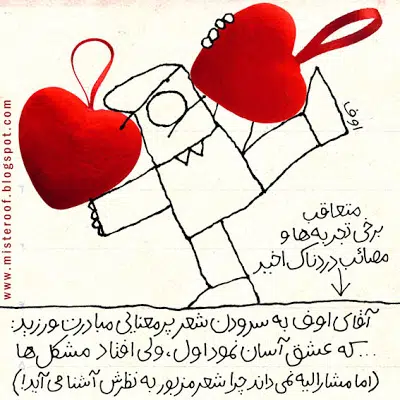 www.misteroof.blogspot.com
اوف
متعاقب
برخی تجربه‌ها و
مصائب دردناک اخیر
آقای اوف به سرودن شعر پرمعنایی مبادرت ورزید:
...که عشق آسان نمود اول، ولی افتاد مشکل‌ها
(اما مشارالیه نمی‌داند چرا شعر مزبور به نظرش آشنا می‌آید!)